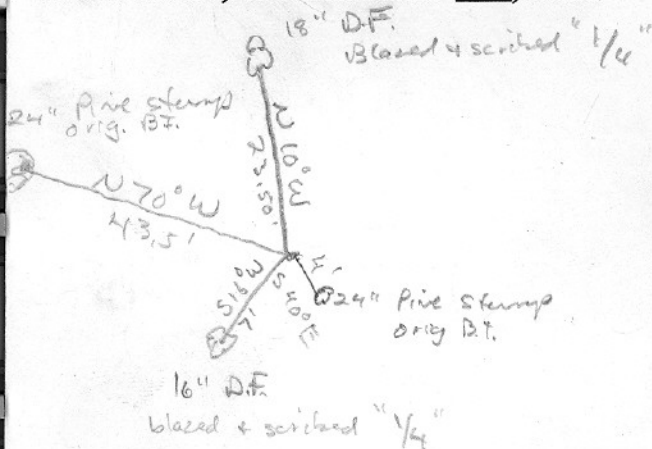 18" D.F.
Blazed + scribed "1/4"
24" Pine stump
orig. B.T.
N 10° W
23.50'
N 70° W
43.5'
4'
S 40° E
24" Pine stump
orig B.T.
S 16° W
7'
16" D.F.
blazed + scribed "1/4"